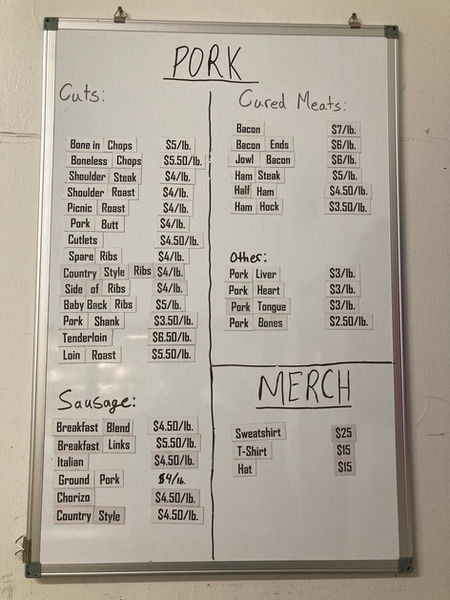 PORK
Cuts:
Bone in Chops $5/lb.
Boneless Chops $5.50/lb.
Shoulder Steak $4/lb.
Shoulder Roast $4/lb.
Picnic Roast $4/lb.
Pork Butt $4/lb.
Cutlets $4.50/lb.
Spare Ribs $4/lb.
Country Style Ribs $4/lb.
Side of Ribs $4/lb.
Baby Back Ribs $5/lb.
Pork Shank $3.50/lb.
Tenderloin $6.50/lb.
Loin Roast $5.50/lb.
Sausage:
Breakfast Blend $4.50/lb.
Breakfast Links $5.50/lb.
Italian $4.50/lb.
Ground Pork $4/lb.
Chorizo $4.50/lb.
Country Style $4.50/lb.
Cured Meats:
Bacon $7/lb.
Bacon Ends $6/lb.
Jowl Bacon $6/lb.
Ham Steak $5/lb.
Half Ham $4.50/lb.
Ham Hock $3.50/lb.
Other:
Pork Liver $3/lb.
Pork Heart $3/lb.
Pork Tongue $3/lb.
Pork Bones $2.50/lb.
MERCH
Sweatshirt $25
T-Shirt $15
Hat $15